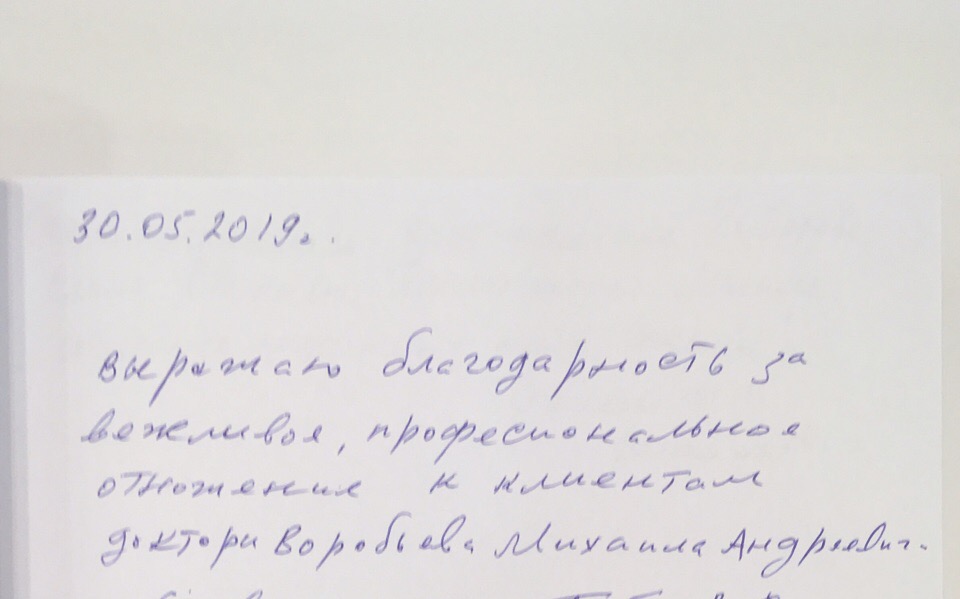 30.05.2019г.
выражаю благодарность за
вежливое, професиональное
отножение к клиентам
доктори Воробьева Михаила Андреевич.